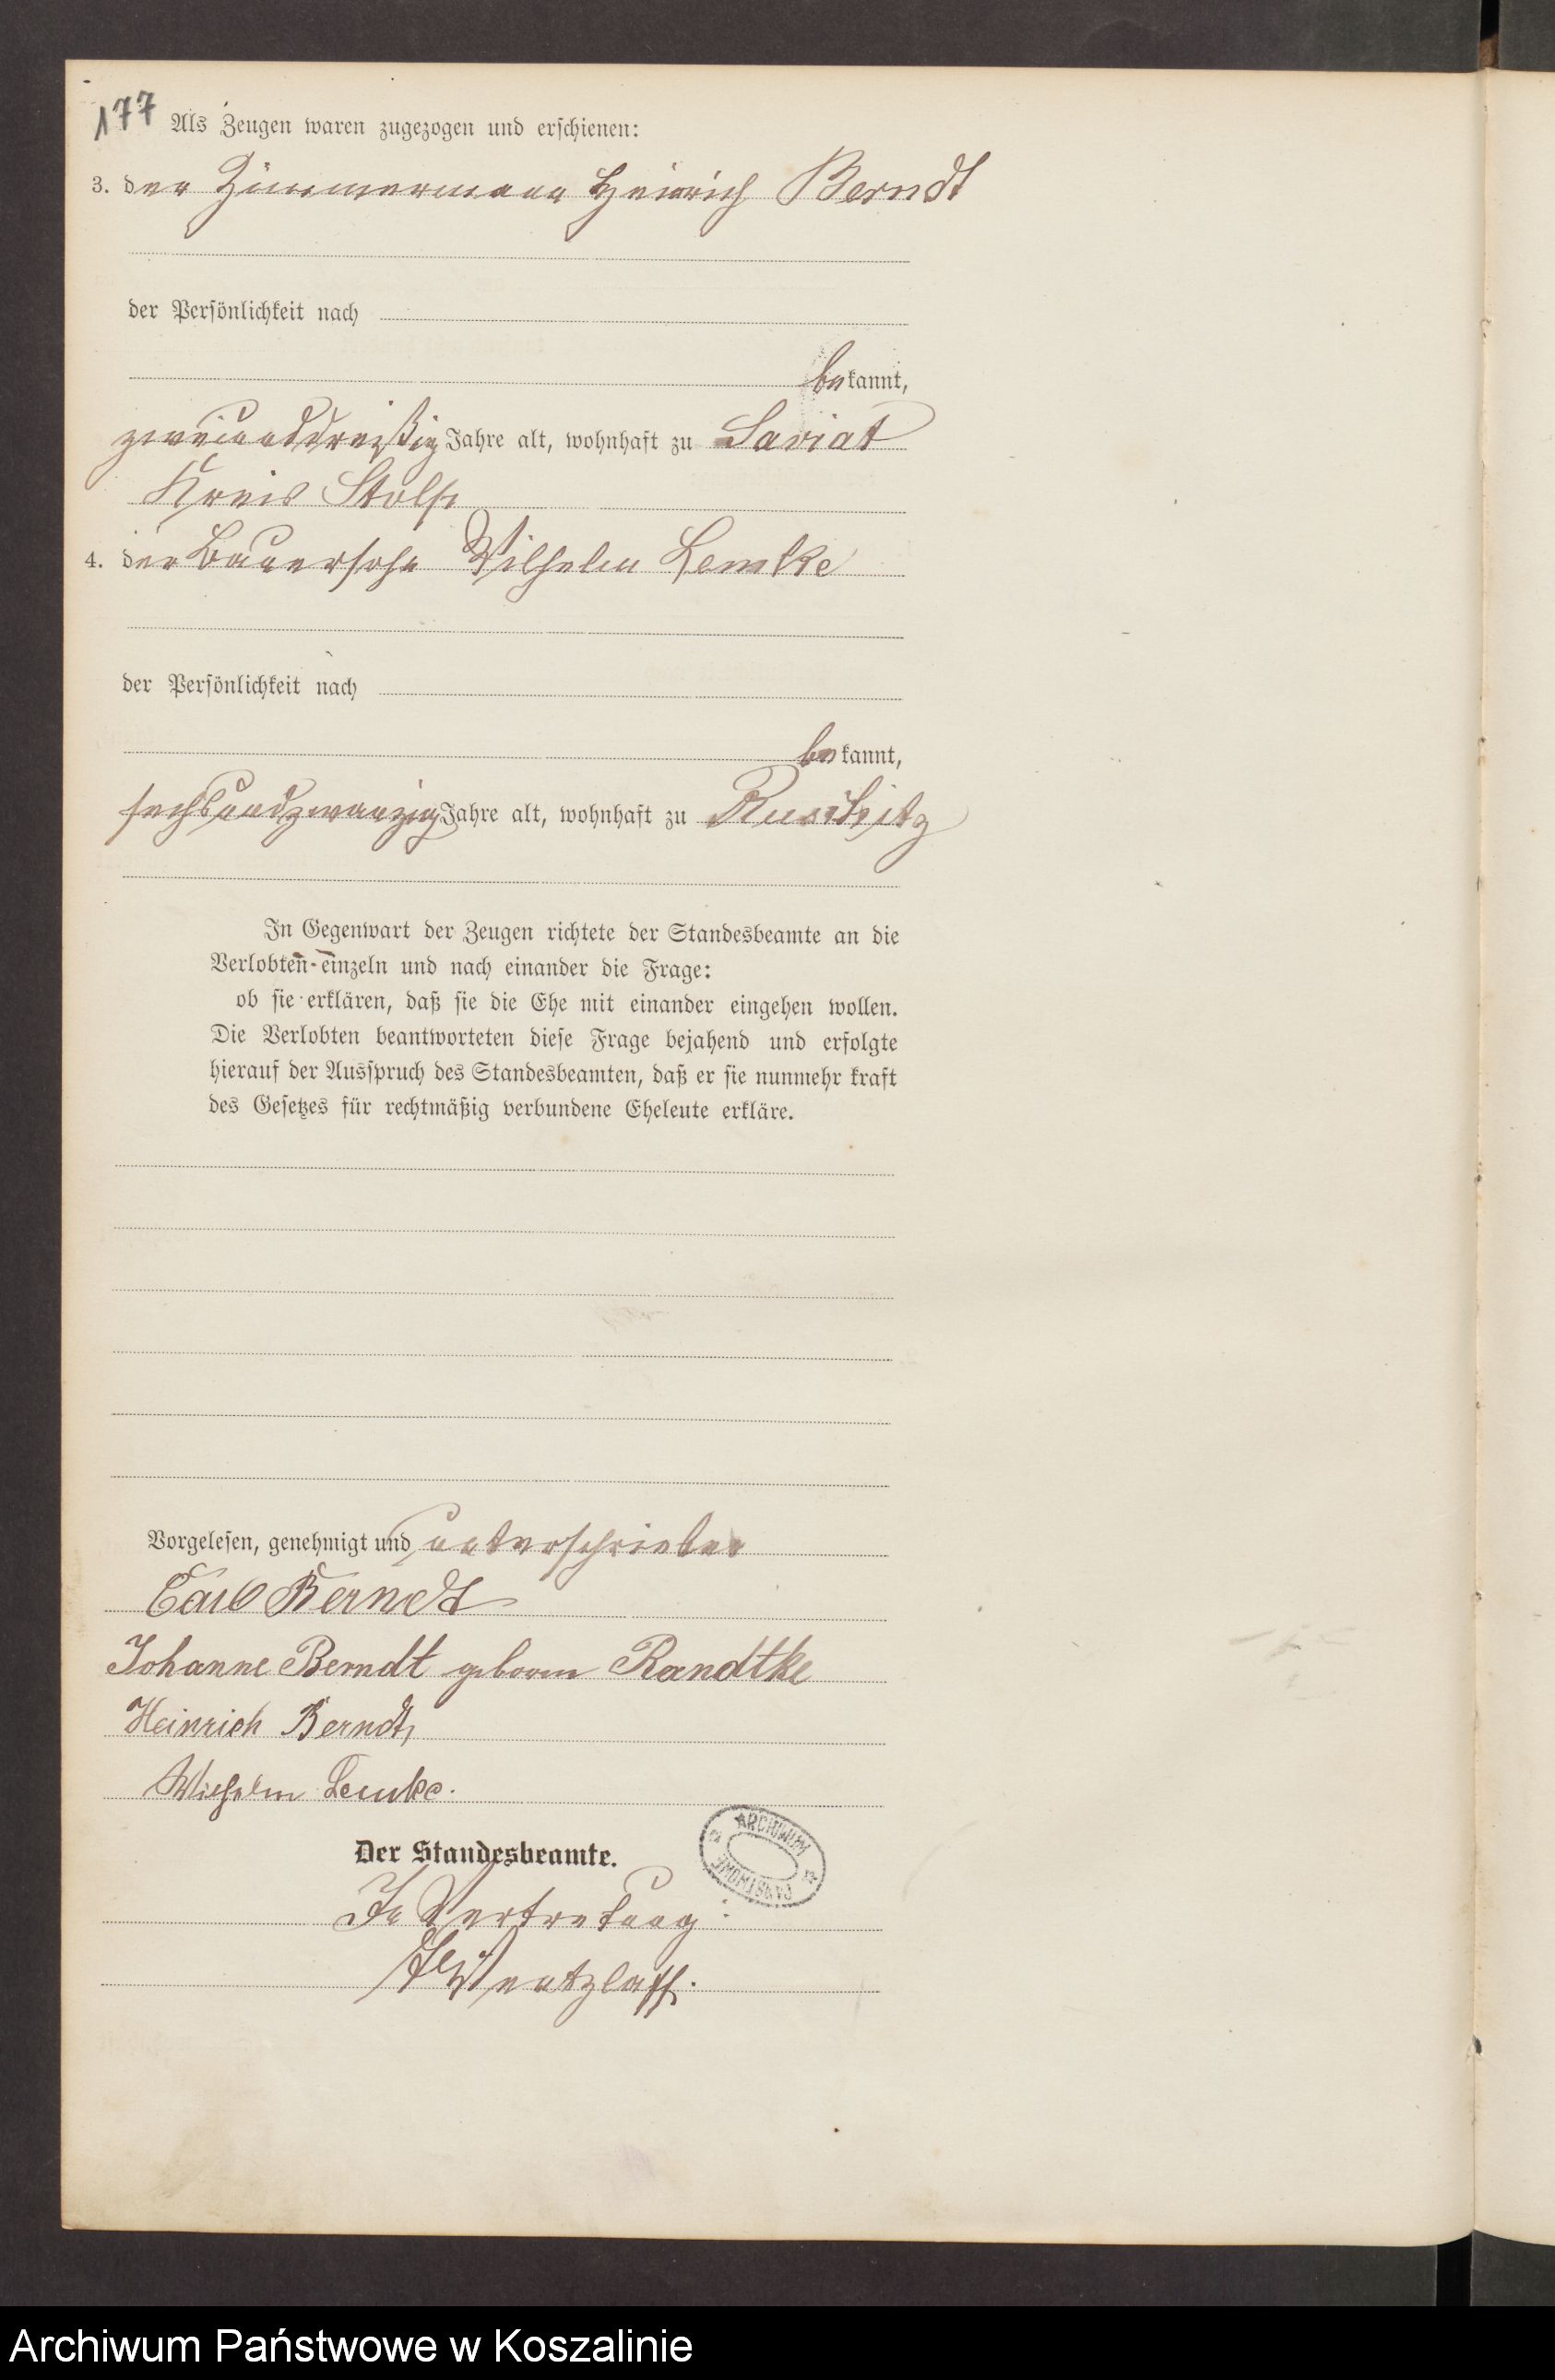 177 Als Zeugen waren zugezogen und erschienen:
3. der Zimmermann Heinrich Berndt
der Persönlichkeit nach
bekannt,
zweiunddreißig Jahre alt, wohnhaft zu Saviat
Kreis Stolp
4. der Bauersohn Wilhelm Lemke
der Persönlichkeit nach
bekannt,
sechsundzwanzig Jahre alt, wohnhaft zu
In Gegenwart der Zeugen richtete der Standesbeamte an die
Verlobten einzeln und nach einander die Frage:
ob sie erklären, daß sie die Ehe mit einander eingehen wollen.
Die Verlobten beantworteten diese Frage bejahend und erfolgte
hierauf der Ausspruch des Standesbeamten, daß er sie nunmehr kraft
des Gesetzes für rechtmäßig verbundene Eheleute erkläre.
Vorgelesen, genehmigt und unterschrieben
Carl Berndt
Johanne Berndt geboren Randtke
Heinrich Berndt
Wilhelm Lemke.
Der Standesbeamte.
ARCHIWUM PAŃSTWOWE
In Vertretung:
Wentzlaff.
Archiwum Państwowe w Koszalinie